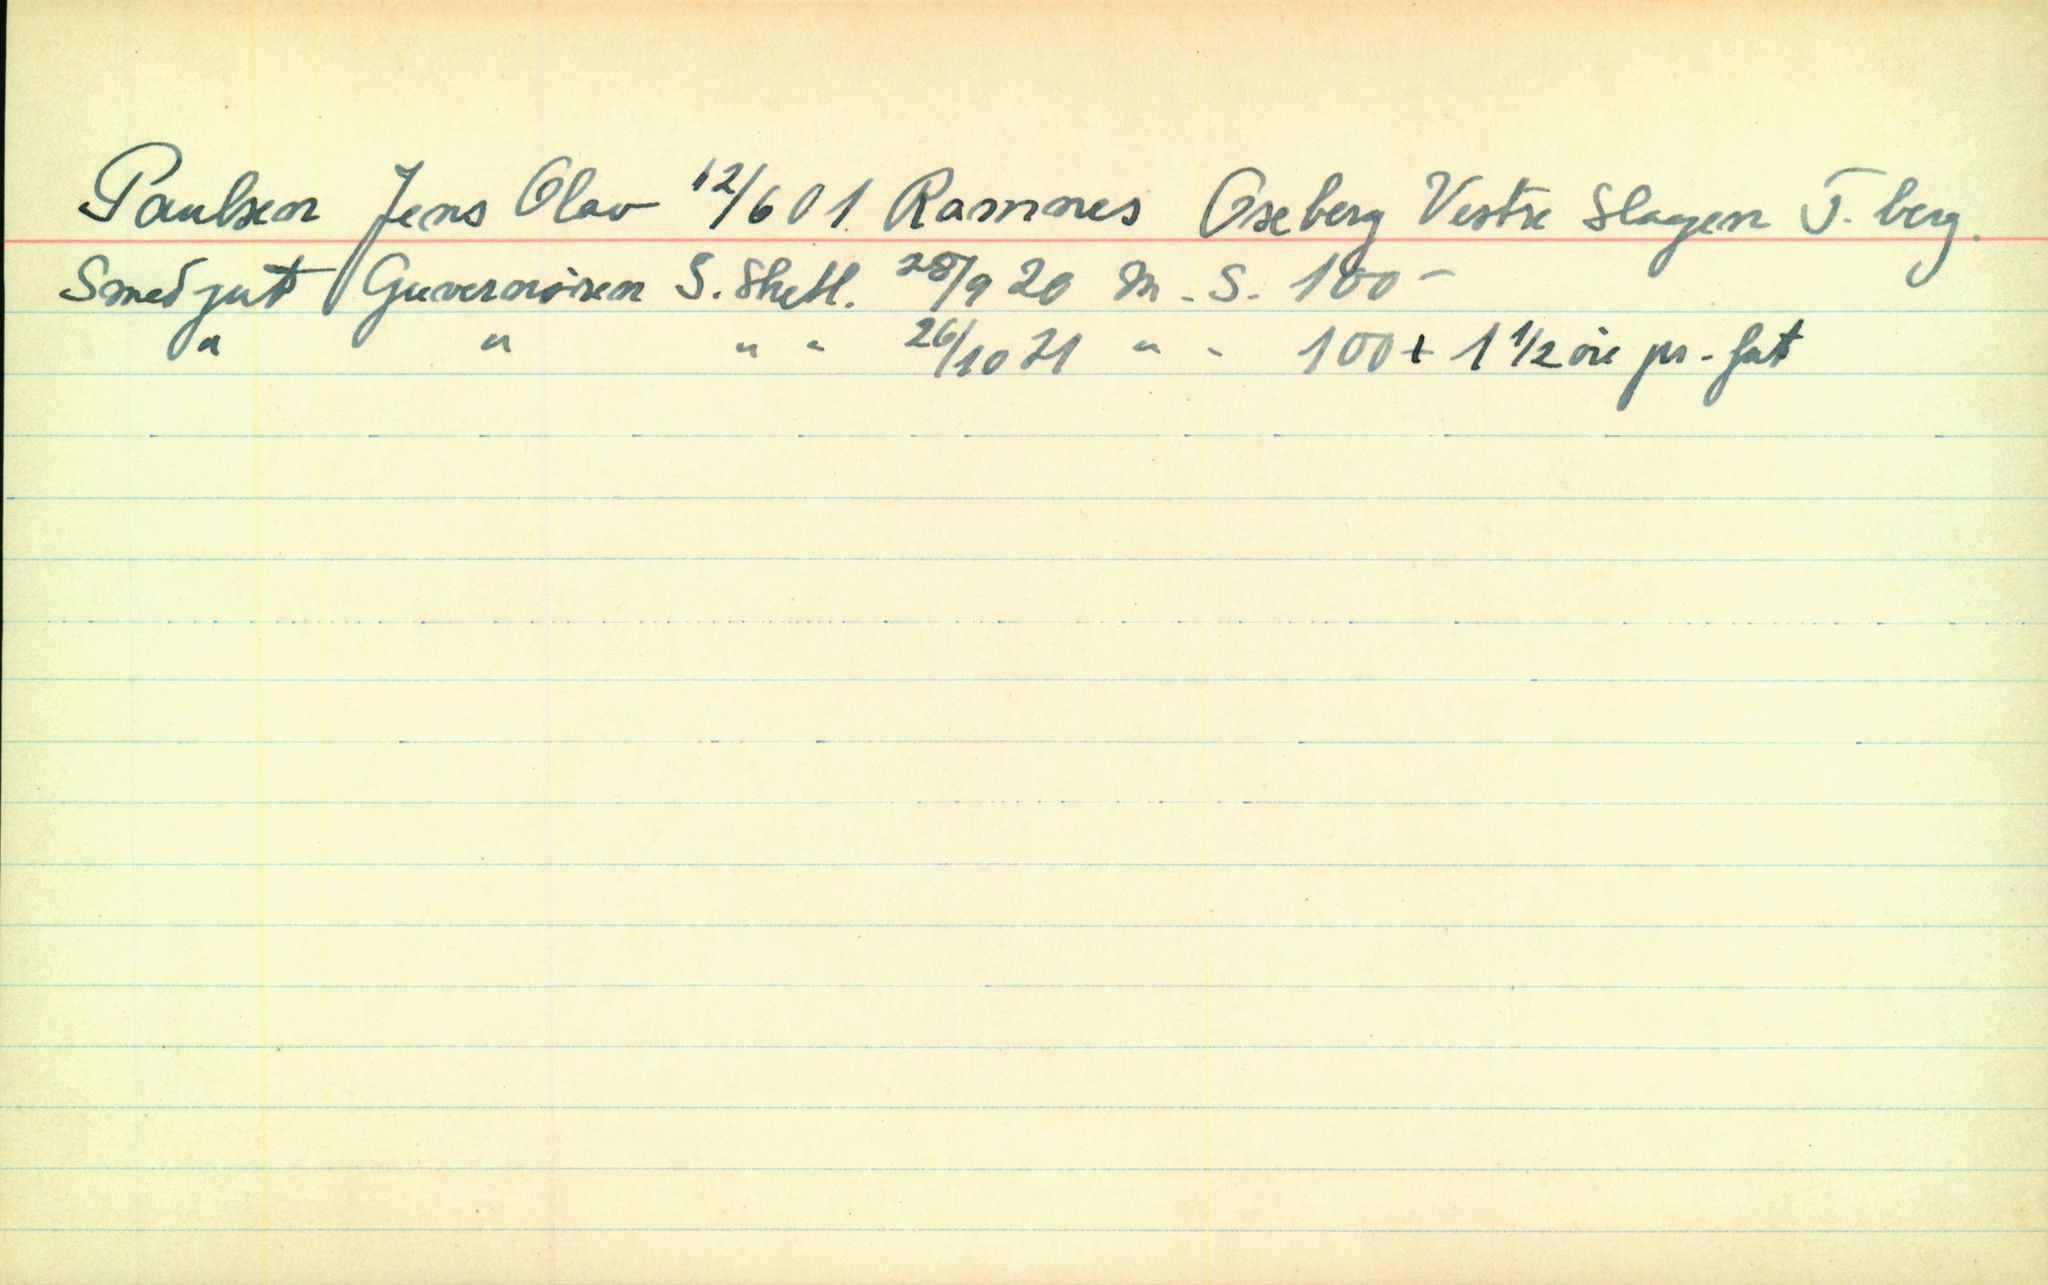 Paulsen Jens Olav 12/6 01 Ramnes Oseberg Vestre Slagen T.berg.
Smedgutt Guvernøren S. Shetl. 28/9 20 m. S. 100 -
" " " " 26/10 21 " " 100 + 1 1/2 øre pr. fat